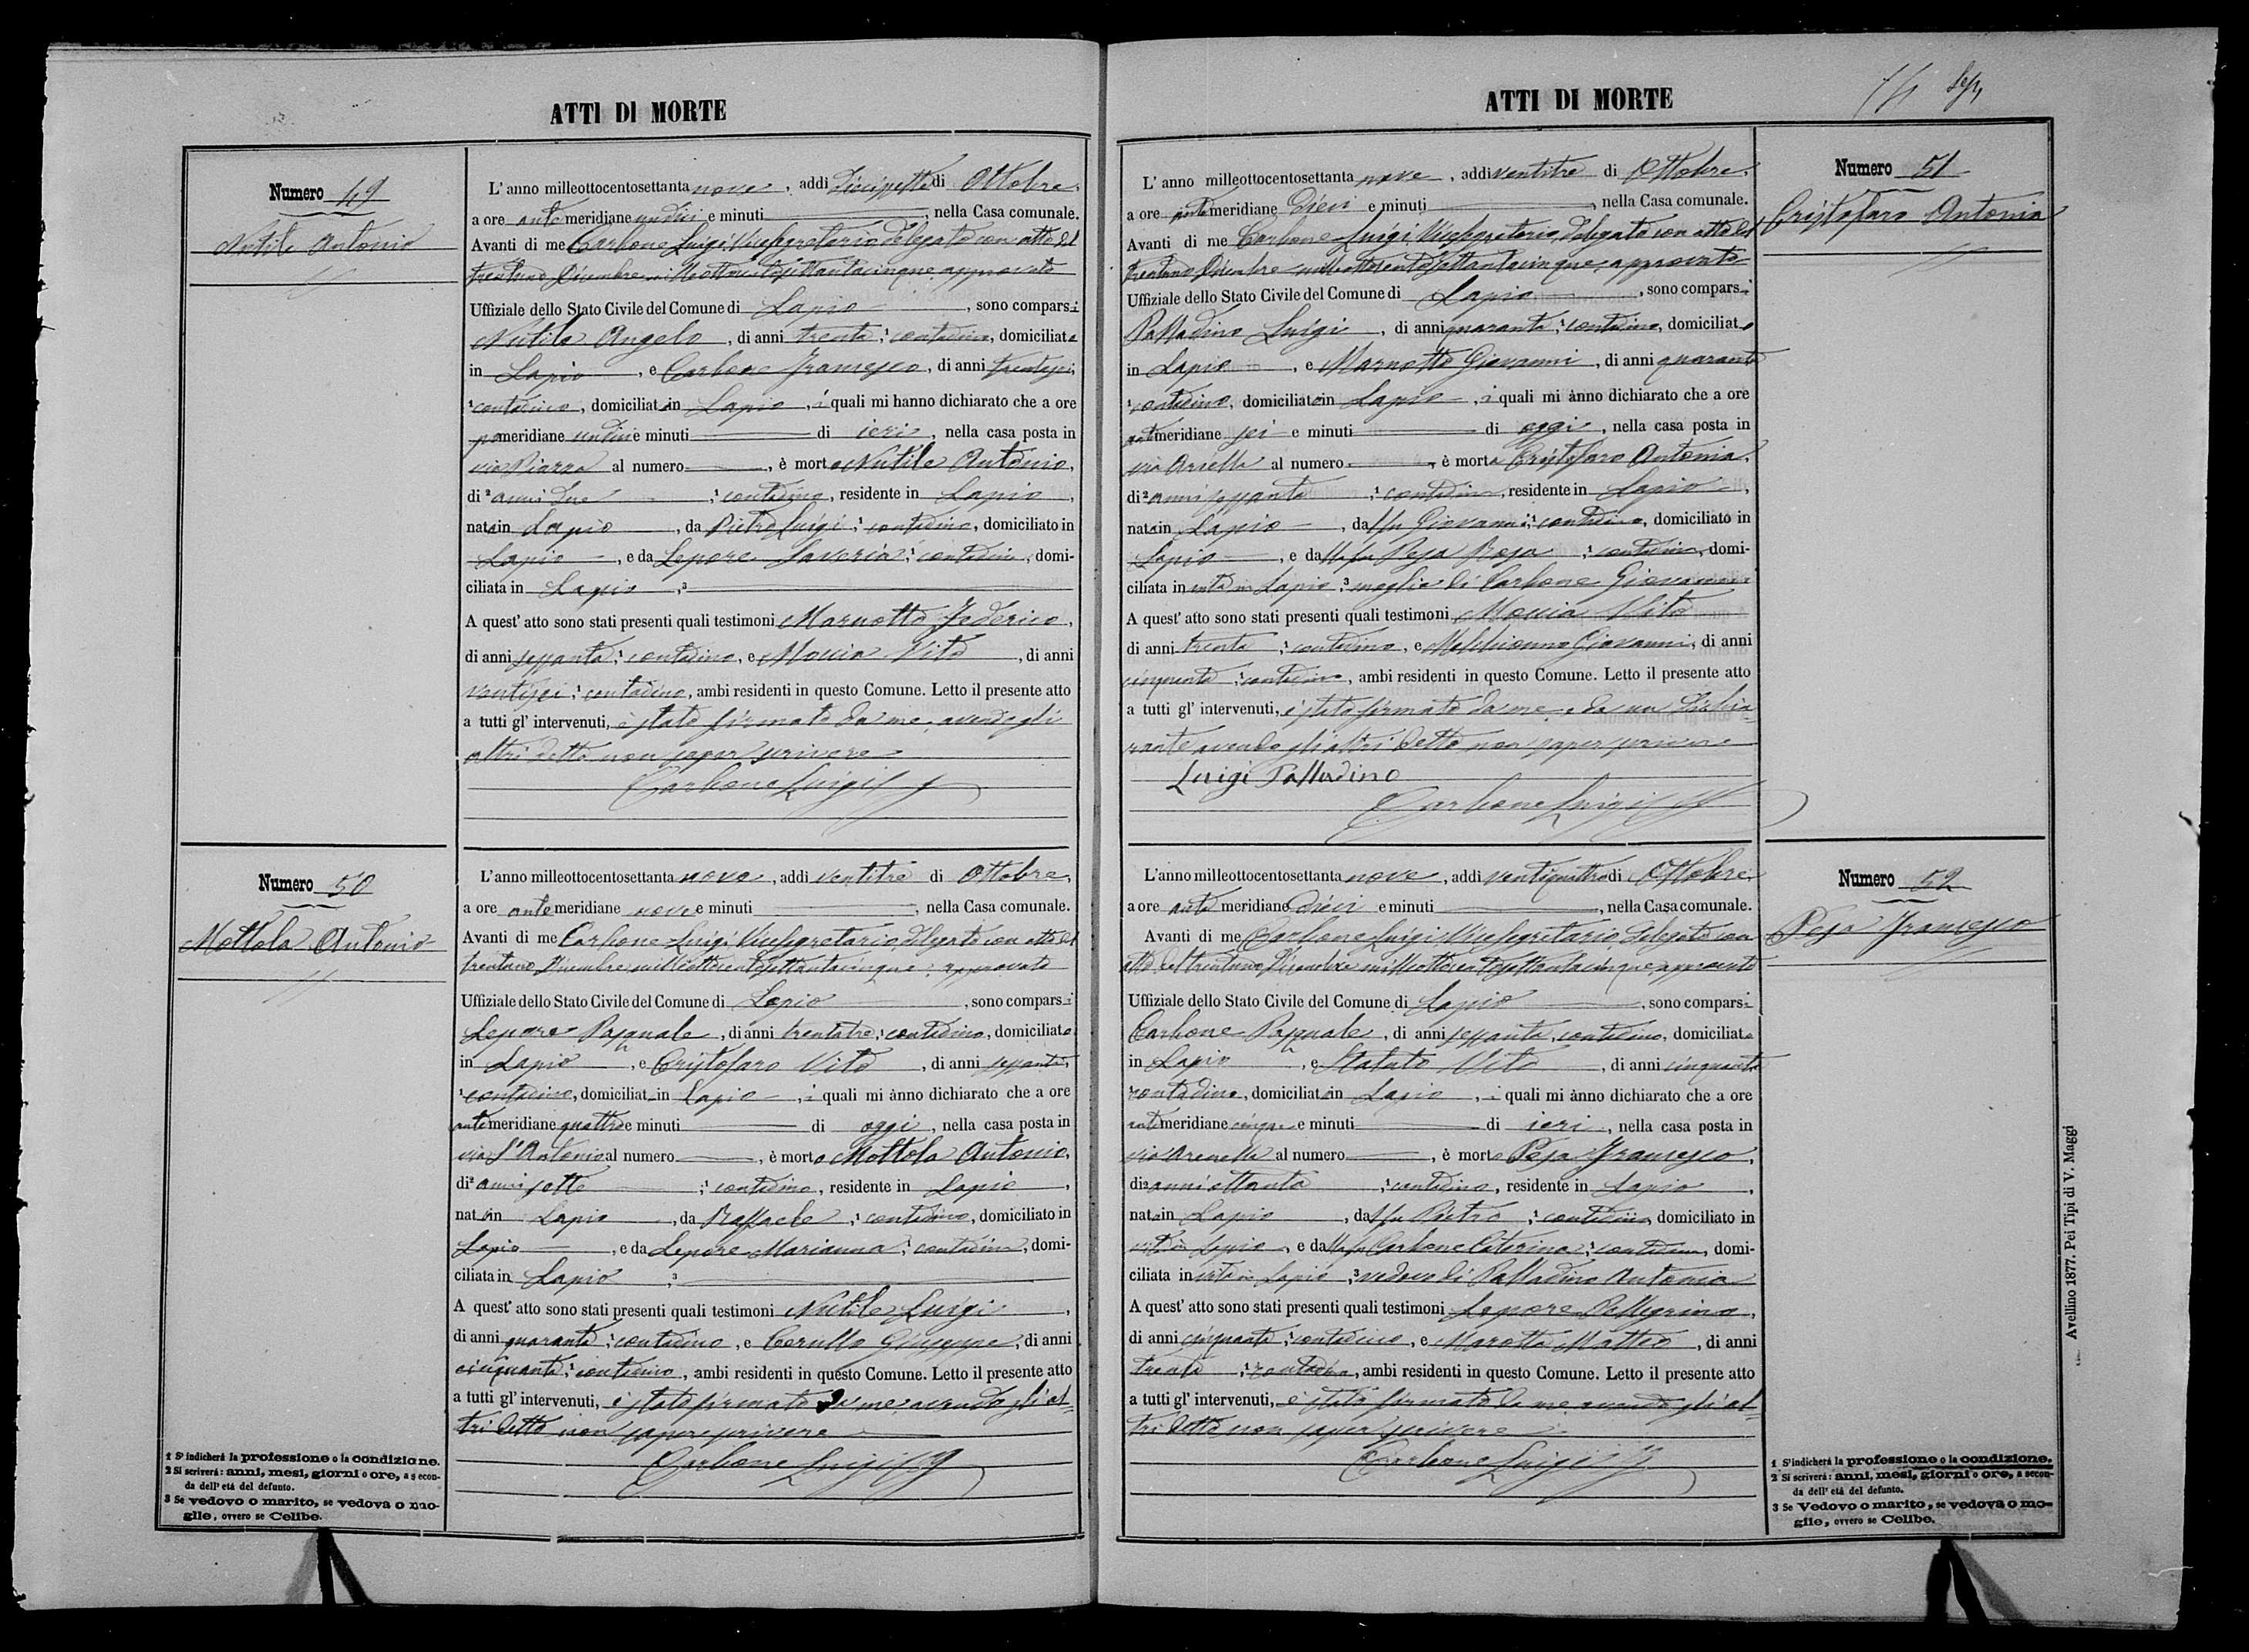 ATTI DI MORTE
Numero 49
Nutile Antonio
L' anno milleottocentosettanta nove, addi diciassette di Ottobre,
a ore ante meridiane undici e minuti, nella Casa comunale.
Avanti di me Carbone Luigi, Vicesegretario delegato con atto del
trentuno Dicembre milleottocentosettantacinque approvato
Uffiziale dello Stato Civile del Comune di Lapio, sono comparsi
Nutile Angelo, di anni trenta, 1 contadino, domiciliato
in Lapio, e Carbone Francesco, di anni trentasei,
1 contadino, domiciliato in Lapio, i quali mi hanno dichiarato che a ore
pomeridiane undici e minuti di ieri, nella casa posta in
via Piazza al numero, è morto Nutile Antonio,
di 2 anni due, 1 contadino, residente in Lapio,
nato in Lapio, da Pietro Luigi, 1 contadino, domiciliato in
Lapio, e da Lepore Saveria, 1 contadina, domi-
ciliata in Lapio, 3
A quest' atto sono stati presenti quali testimoni Marnotto Federico,
di anni sessanta, 1 contadino, e Moccia Vito, di anni
ventisei, 1 contadino, ambi residenti in questo Comune. Letto il presente atto
a tutti gl' intervenuti, è stato firmato da me, avendo gli
altri detto non saper scrivere
Carbone Luigi
Numero 50
Mottola Antonio
L'anno milleottocentosettanta nove, addi ventitre di Ottobre,
a ore antemeridiane nove e minuti, nella Casa comunale.
Avanti di me Carbone Luigi, Vicesegretario delegato con atto del
trentuno Dicembre milleottocentosettantacinque, approvato
Uffiziale dello Stato Civile del Comune di Lapio, sono comparsi
Lepore Pasquale, di anni trentatre, 1 contadino, domiciliato
in Lapio, e Cristofaro Vito, di anni sessanta,
1 contadino, domiciliat in Lapio, i quali mi ànno dichiarato che a ore
antemeridiane quattro e minuti di oggi, nella casa posta in
via S. Antonio al numero, è morto Mottola Antonio,
di 2 anni sette, 1 contadino, residente in Lapio,
nato in Lapio, da Raffaele, 1 contadino, domiciliato in
Lapio, e da Lepore Marianna, 1 contadina, domi-
ciliata in Lapio, 3
A quest' atto sono stati presenti quali testimoni Nutile Luigi,
di anni quaranta, 1 contadino, e Cerullo Giuseppe, di anni
cinquanta, 1 contadino, ambi residenti in questo Comune. Letto il presente atto
a tutti gl' intervenuti, è stato firmato da me avendo gli al=
tri detto non sapere scrivere
Carbone Luigi
1 S' indicherà la professione o la condizione.
2 Si scriverà: anni, mesi, giorni o ore, a secon-
da dell' età del defunto.
3 Se vedovo o marito, se vedova o mo-
glie, ovvero se Celibe.
ATTI DI MORTE
L' anno milleottocentosettanta nove, addi ventitre di Ottobre,
a ore antemeridiane dieci e minuti, nella Casa comunale.
Avanti di me Carbone Luigi, Vicesegretario, delegato con atto del
trentuno Dicembre milleottocentosettantacinque, approvato
Uffiziale dello Stato Civile del Comune di Lapio, sono comparsi
Palladino Luigi, di anni quaranta, 1 contadino, domiciliato
in Lapio, e Marnotto Giovanni, di anni quaranta
1 contadino, domiciliato in Lapio, i quali mi ànno dichiarato che a ore
antimeridiane sei e minuti di oggi, nella casa posta in
via Ariella al numero, è morta Cristofaro Antonia,
di 2 anni sessanta, 1 contadina, residente in Lapio,
nata in Lapio, da fu Giovanni, 1 contadino, domiciliato in
Lapio, e dalla fu Pesa Rosa, 1 contadina, domi-
ciliata in vita in Lapio, 3 moglie di Carbone Giovanni
A quest' atto sono stati presenti quali testimoni Moccia Vito
di anni trenta, 1 contadino, e Melchionno Giovanni, di anni
cinquanta, 1 contadino, ambi residenti in questo Comune. Letto il presente atto
a tutti gl' intervenuti, è stato firmato da me e da un dichia-
rante avendo gli altri detto non saper scrivere
Luigi Palladino
Carbone Luigi
Numero 51
Cristofaro Antonia
L'anno milleottocentosettanta nove, addi ventiquattro di Ottobre,
a ore ante meridiane dieci e minuti, nella Casa comunale.
Avanti di me Carbone Luigi Vicesegretario, delegato con
atto del trentuno Dicembre milleottocentosettantacinque, approvato
Uffiziale dello Stato Civile del Comune di Lapio, sono comparsi
Carbone Pasquale, di anni sessanta, contadino, domiciliato
in Lapio, e Staluto Vito, di anni cinquanta
contadino, domiciliato in Lapio, i quali mi ànno dichiarato che a ore
antimeridiane cinque e minuti di ieri, nella casa posta in
via Arenella al numero, è morto Pesa Francesco,
di 2 anni ottanta, 1 contadino, residente in Lapio,
nato in Lapio, dal fu Pietro, 1 contadino, domiciliato in
vita in Lapio, e dalla fu Carbone Caterina, 1 contadina, domi-
ciliata in vita in Lapio, 3 vedovo di Palladino Antonia
A quest' atto sono stati presenti quali testimoni Lepore Pellegrino,
di anni cinquanta, 1 contadino, e Marotta Matteo, di anni
trenta, 1 contadino, ambi residenti in questo Comune. Letto il presente atto
a tutti gl' intervenuti, è stato firmato da me avendo gli al=
tri detto non saper scrivere
Carbone Luigi
Numero 52
Pesa Francesco
1 S'indicherà la professione o la condizione.
2 Si scriverà: anni, mesi, giorni o ore, a secon-
da dell' età del defunto.
3 Se Vedovo o marito, se vedova o mo-
glie, ovvero se Celibe.
Avellino 1877. Pei Tipi di V. Maggi